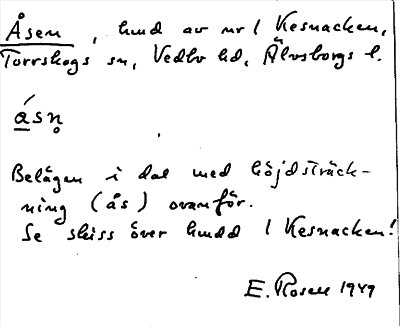 Åsen, hmd av nr 1 Kesnacken,
Torrskogs sn, Vedbo hd, Älvsborgs l.
ásn̥
Belägen i dal med höjdsträck-
ning (ås) ovanför.
Se skiss över hmdd 1 Kesnacken!
E. Rosell 1949